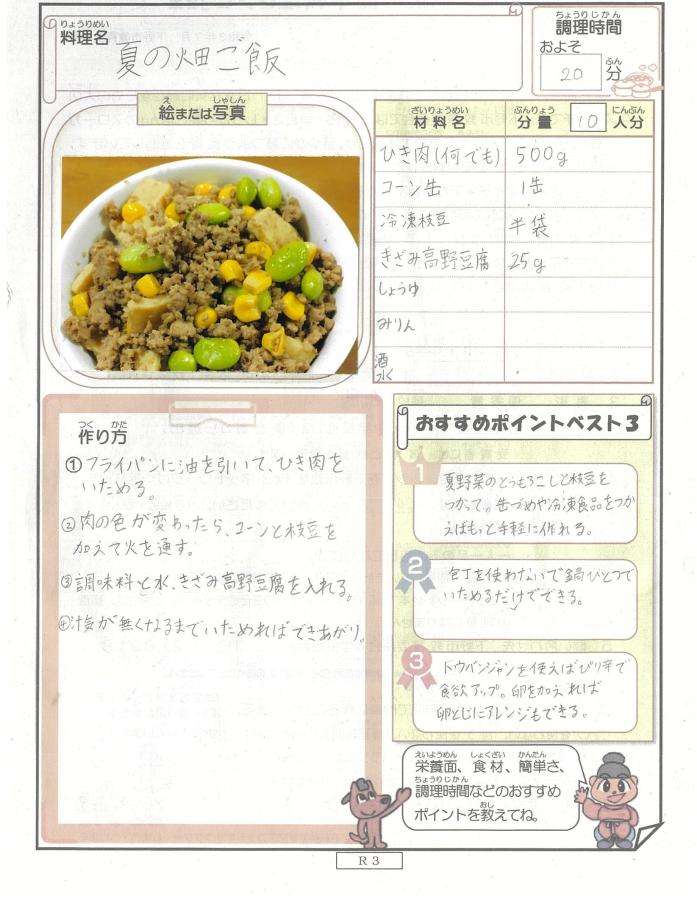 りょうりめい
料理名
夏の畑ご飯
ちょうりじかん
調理時間
およそ
20
ふん
分
え しゃしん
絵または写真
ざいりょうめい ぶんりょう にんぶん
材料名 分量 10 人分
ひき肉(何でも) 500g
コーン缶 1缶
冷凍枝豆 半袋
きざみ高野豆腐 25g
しょうゆ
みりん
酒
水
つく かた
作り方
①フライパンに油を引いて、ひき肉を
いためる。
②肉の色が変わったら、コーンと枝豆を
加えて火を通す。
③調味料と水、きざみ高野豆腐を入れる。
④汁気が無くなるまでいためればできあがり。
おすすめポイントベスト3
1
夏野菜のとうもろこしと枝豆を
つかって。缶づめや冷凍食品をつか
えばもっと手軽に作れる。
2
包丁を使わないで鍋ひとつで
いためるだけでできる。
3
トウバンジャンを使えばぴり辛で
食欲アップ。卵を加えれば
卵とじにアレンジもできる。
えいようめん しょくざい かんたん
栄養面、食材、簡単さ、
ちょうりじかん
調理時間などのおすすめ
おし
ポイントを教えてね。
R3